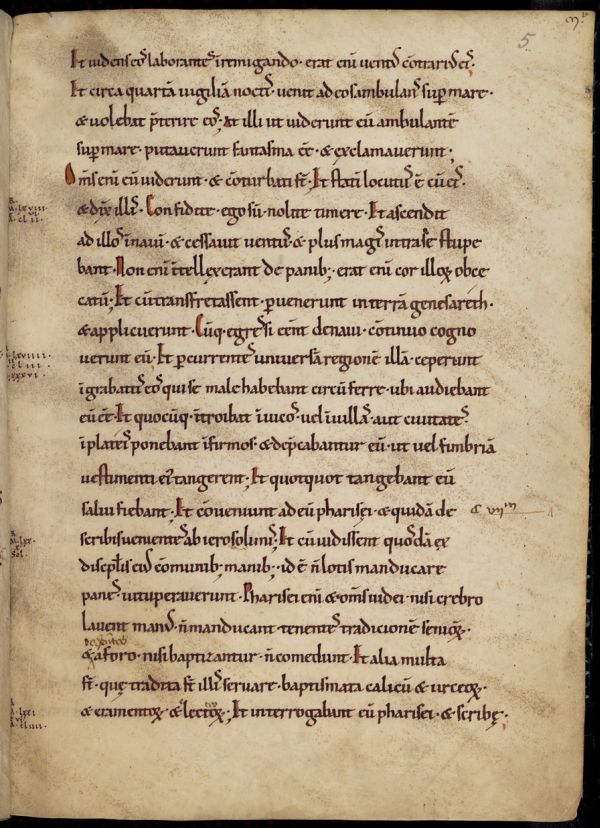 ɱ
5
Et uidens eoſ laboranteſ ĩ remigando· erat eni uentuſ c̄trariuſ eiſ·
Et circa quartā uigiliā noctiſ uenit ad eos ambulanſ sup mare·
& uolebat p̄terire eoſ· at illi ut uiderunt eū ambulantē
sup mare· putauerunt fantasma eē· & exclamauerunt;
Om̄s eni eū uiderunt· & cōturbati sť· Et statī locutuſ ē cū eiſ·
& dix̄ illiſ· Confidite· ego sū· nolite timere· Et ascendit
ad illoſ ĩ nauī· & cessauit uentuſ· & pluſ magiſ intra se stupe
bant· Non eni ĩtellexerant de panib;· erat eni cor illoꝝ obce
catū; Et cū transfretassent· puenerunt in terrā genesareth·
& applicuerunt· Cūq· egressi eēnt de naui· cōtinuo cogno
uerunt eū· Et pcurrenteſ uniuersā regionē illā· ceperunt
ĩ grabattiſ eoſ qui se male habebant circū ferre· ubi audiebant
eū eē· Et quocūq· ĩtroibat ĩ uicoſ· uel ĩ uillaſ· aut ciuitateſ·
ĩ plateiſ ponebant ĩfirmoſ· & dep̄cabantur eū· ut uel fimbriā
uestimenti eiꝰ tangerent; Et quotquot tangebant eū
salui fiebant; Et cōueniunt ad eū pharisei· & quidā de
& vii m
scribis uenienteſ ab ierosolimiſ· Et cū uidissent quosdā ex
discipl̄is eiuſ cōmunib; manib;· id ē ñ lotis manducare
paneſ uituperauerunt· Pharisei eni & om̄s iudei· nisi crebro
lauent manuſ· ñ manducant· tenenteſ tradicionē senioꝝ·
& a foro· nisi baptizantur· ñ comedunt· Et alia multa
sť· quę tradita sť illiſ seruare· baptismata calicū & urceoꝝ·
& eramentoꝝ· & lectoꝝ; Et interrogabant eū pharisei· & scribę·